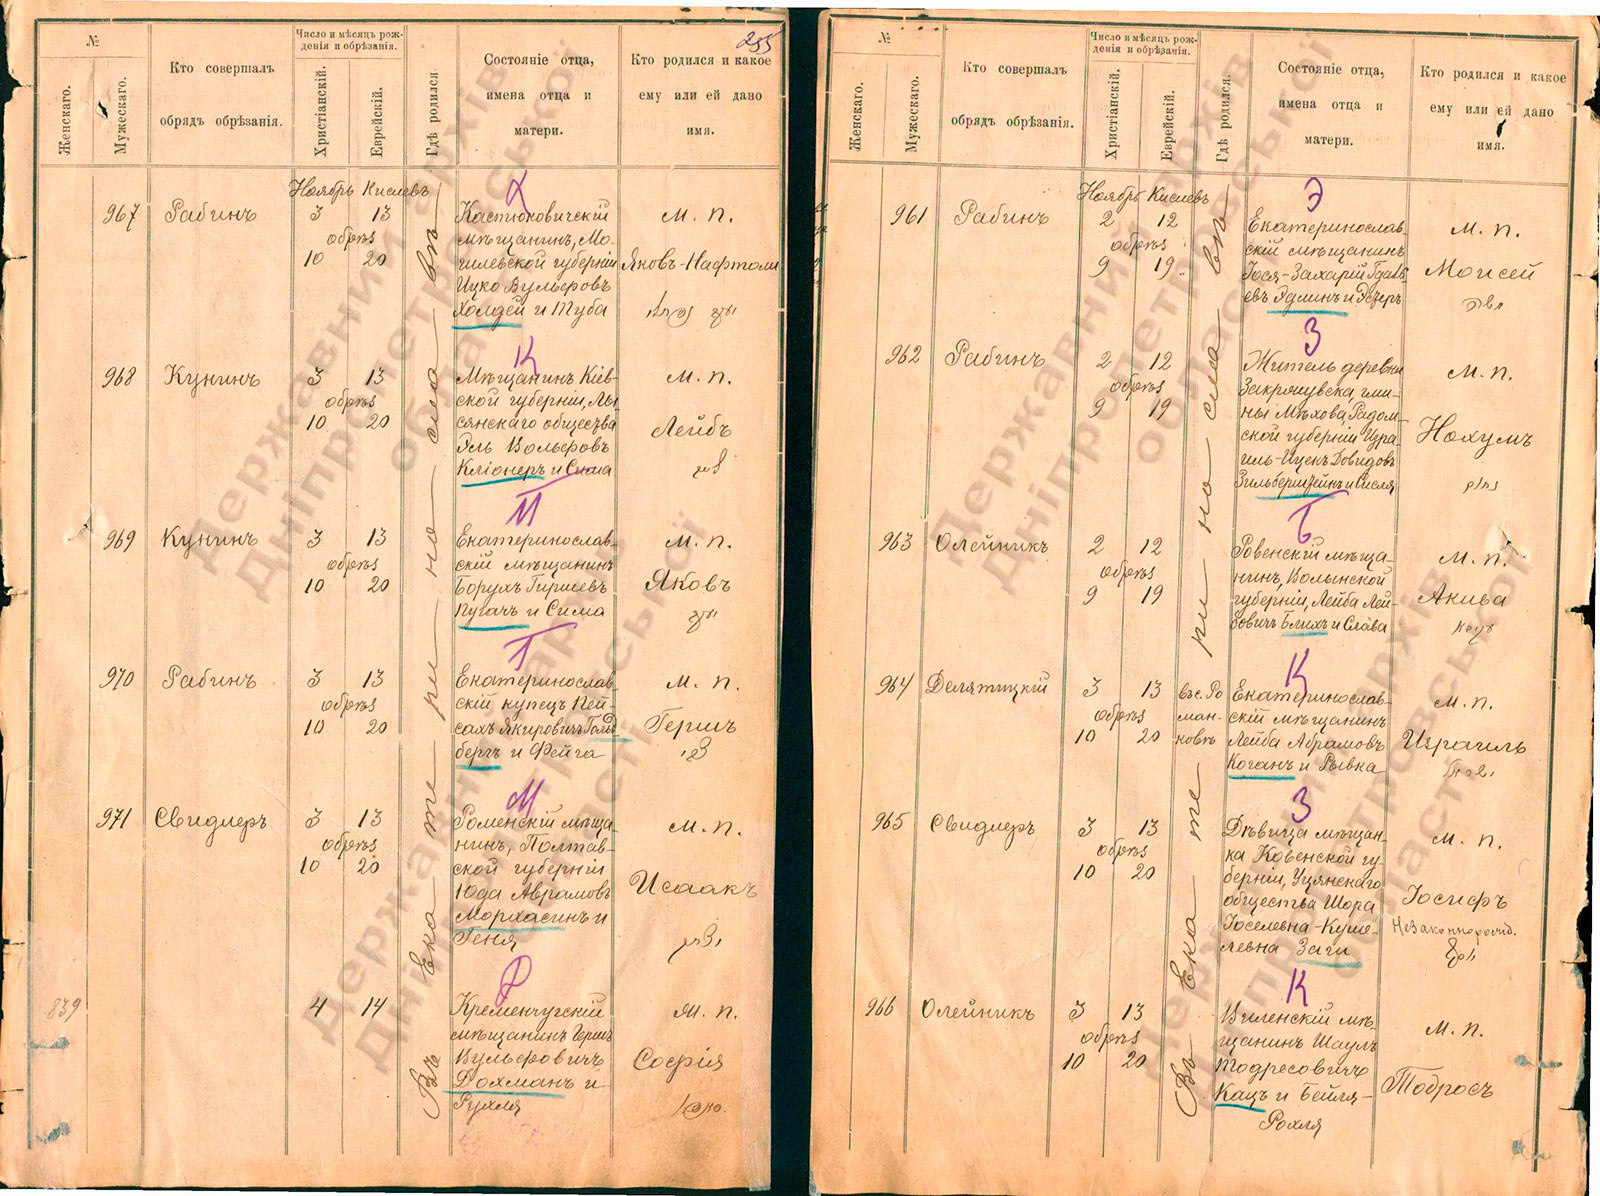 255
№
Женскаго.
Мужескаго.
Кто совершалъ
обрядъ обрѣзанія.
Число и мѣсяцъ рож-
денія и обрѣзанія.
Христіанскій.
Еврейскій.
Гдѣ родился.
Состояніе отца,
имена отца и
матери.
Кто родился и какое
ему или ей дано
имя.
Ноябрь Кислевъ
Въ Екатеринославѣ
Х
967 Рабинъ 3 13
обрѣз
10 20
Кастюковичскій
мѣщанинъ, Мо-
гилевской губерніи
Ицко Вульфовъ
Холдей и Туба
м. п.
Яковъ-Нафтоли
К
968 Кунинъ 3 13
обрѣз
10 20
Мѣщанинъ Кіев-
ской губерніи, Лы-
сянскаго общества
Вольфовъ
Кліонеръ и Сима
м. п.
Лейбъ
П
969 Кунинъ 3 13
обрѣз
10 20
Екатеринослав-
скій мѣщанинъ
Борухъ Гиршевъ
Пугачъ и Сима
м. п.
Яковъ
Г
970 Рабинъ 3 13
обрѣз
10 20
Екатеринослав-
скій купецъ Пей-
сахъ Якировичъ Гольд-
бергъ и Фейга
м. п.
Гершъ
М
971 Свидлеръ 3 13
обрѣз
10 20
Роменскій мѣща-
нинъ, Полтав-
ской губерніи
Юда Аврамовъ
Морхасинъ и
Геня
м. п.
Исаакъ
839 4 14
Кременчугскій
мѣщанинъ Гершъ
Вульфовичъ
Дохманъ и
Рухля
ж. п.
Софія
№
Женскаго.
Мужескаго.
Кто совершалъ
обрядъ обрѣзанія.
Число и мѣсяцъ рож-
денія и обрѣзанія.
Христіанскій.
Еврейскій.
Гдѣ родился.
Состояніе отца,
имена отца и
матери.
Кто родился и какое
ему или ей дано
имя.
Ноябрь Кислевъ
Въ Екатеринославѣ
Э
961 Рабинъ 2 12
обрѣз
9 19
Екатеринослав-
скій мѣщанинъ
Іося-Захарій
Эдлинъ и Эстеръ
м. п.
Моисей
З
962 Рабинъ 2 12
обрѣз
9 19
Житель деревни
гми-
ны Мѣхова, Радом-
ской губерніи Изра-
иль-Ицекъ Довидовъ
Зильберштейнъ и
м. п.
Нохумъ
Б
963 Олейникъ 2 12
обрѣз
9 19
Ровенскій мѣща-
нинъ, Волынской
губерніи, Лейба Лей-
бовичъ Блихъ и Слава
м. п.
Акива
К
964 Делятицкій 3 13
обрѣз
10 20
въ с. Ро
ман-
ковѣ
Екатеринослав-
скій мѣщанинъ
Лейба Абрамовъ
Коганъ и Рывка
м. п.
Израиль
З
965 Свидлеръ 3 13
обрѣз
10 20
Дѣвица мѣщан-
ка Ковенской гу-
берніи, Уцянскаго
общества Шора
Іоселевна-Куше-
левна Заги
м. п.
Іосифъ
Незаконнорожд.
К
966 Олейникъ 3 13
обрѣз
10 20
Виленскій мѣ-
щанинъ Шаулъ
Тодресовичъ
Кацъ и Бейля-
Рохля
м. п.
Тодросъ
Державний архів
Дніпропетровської
області